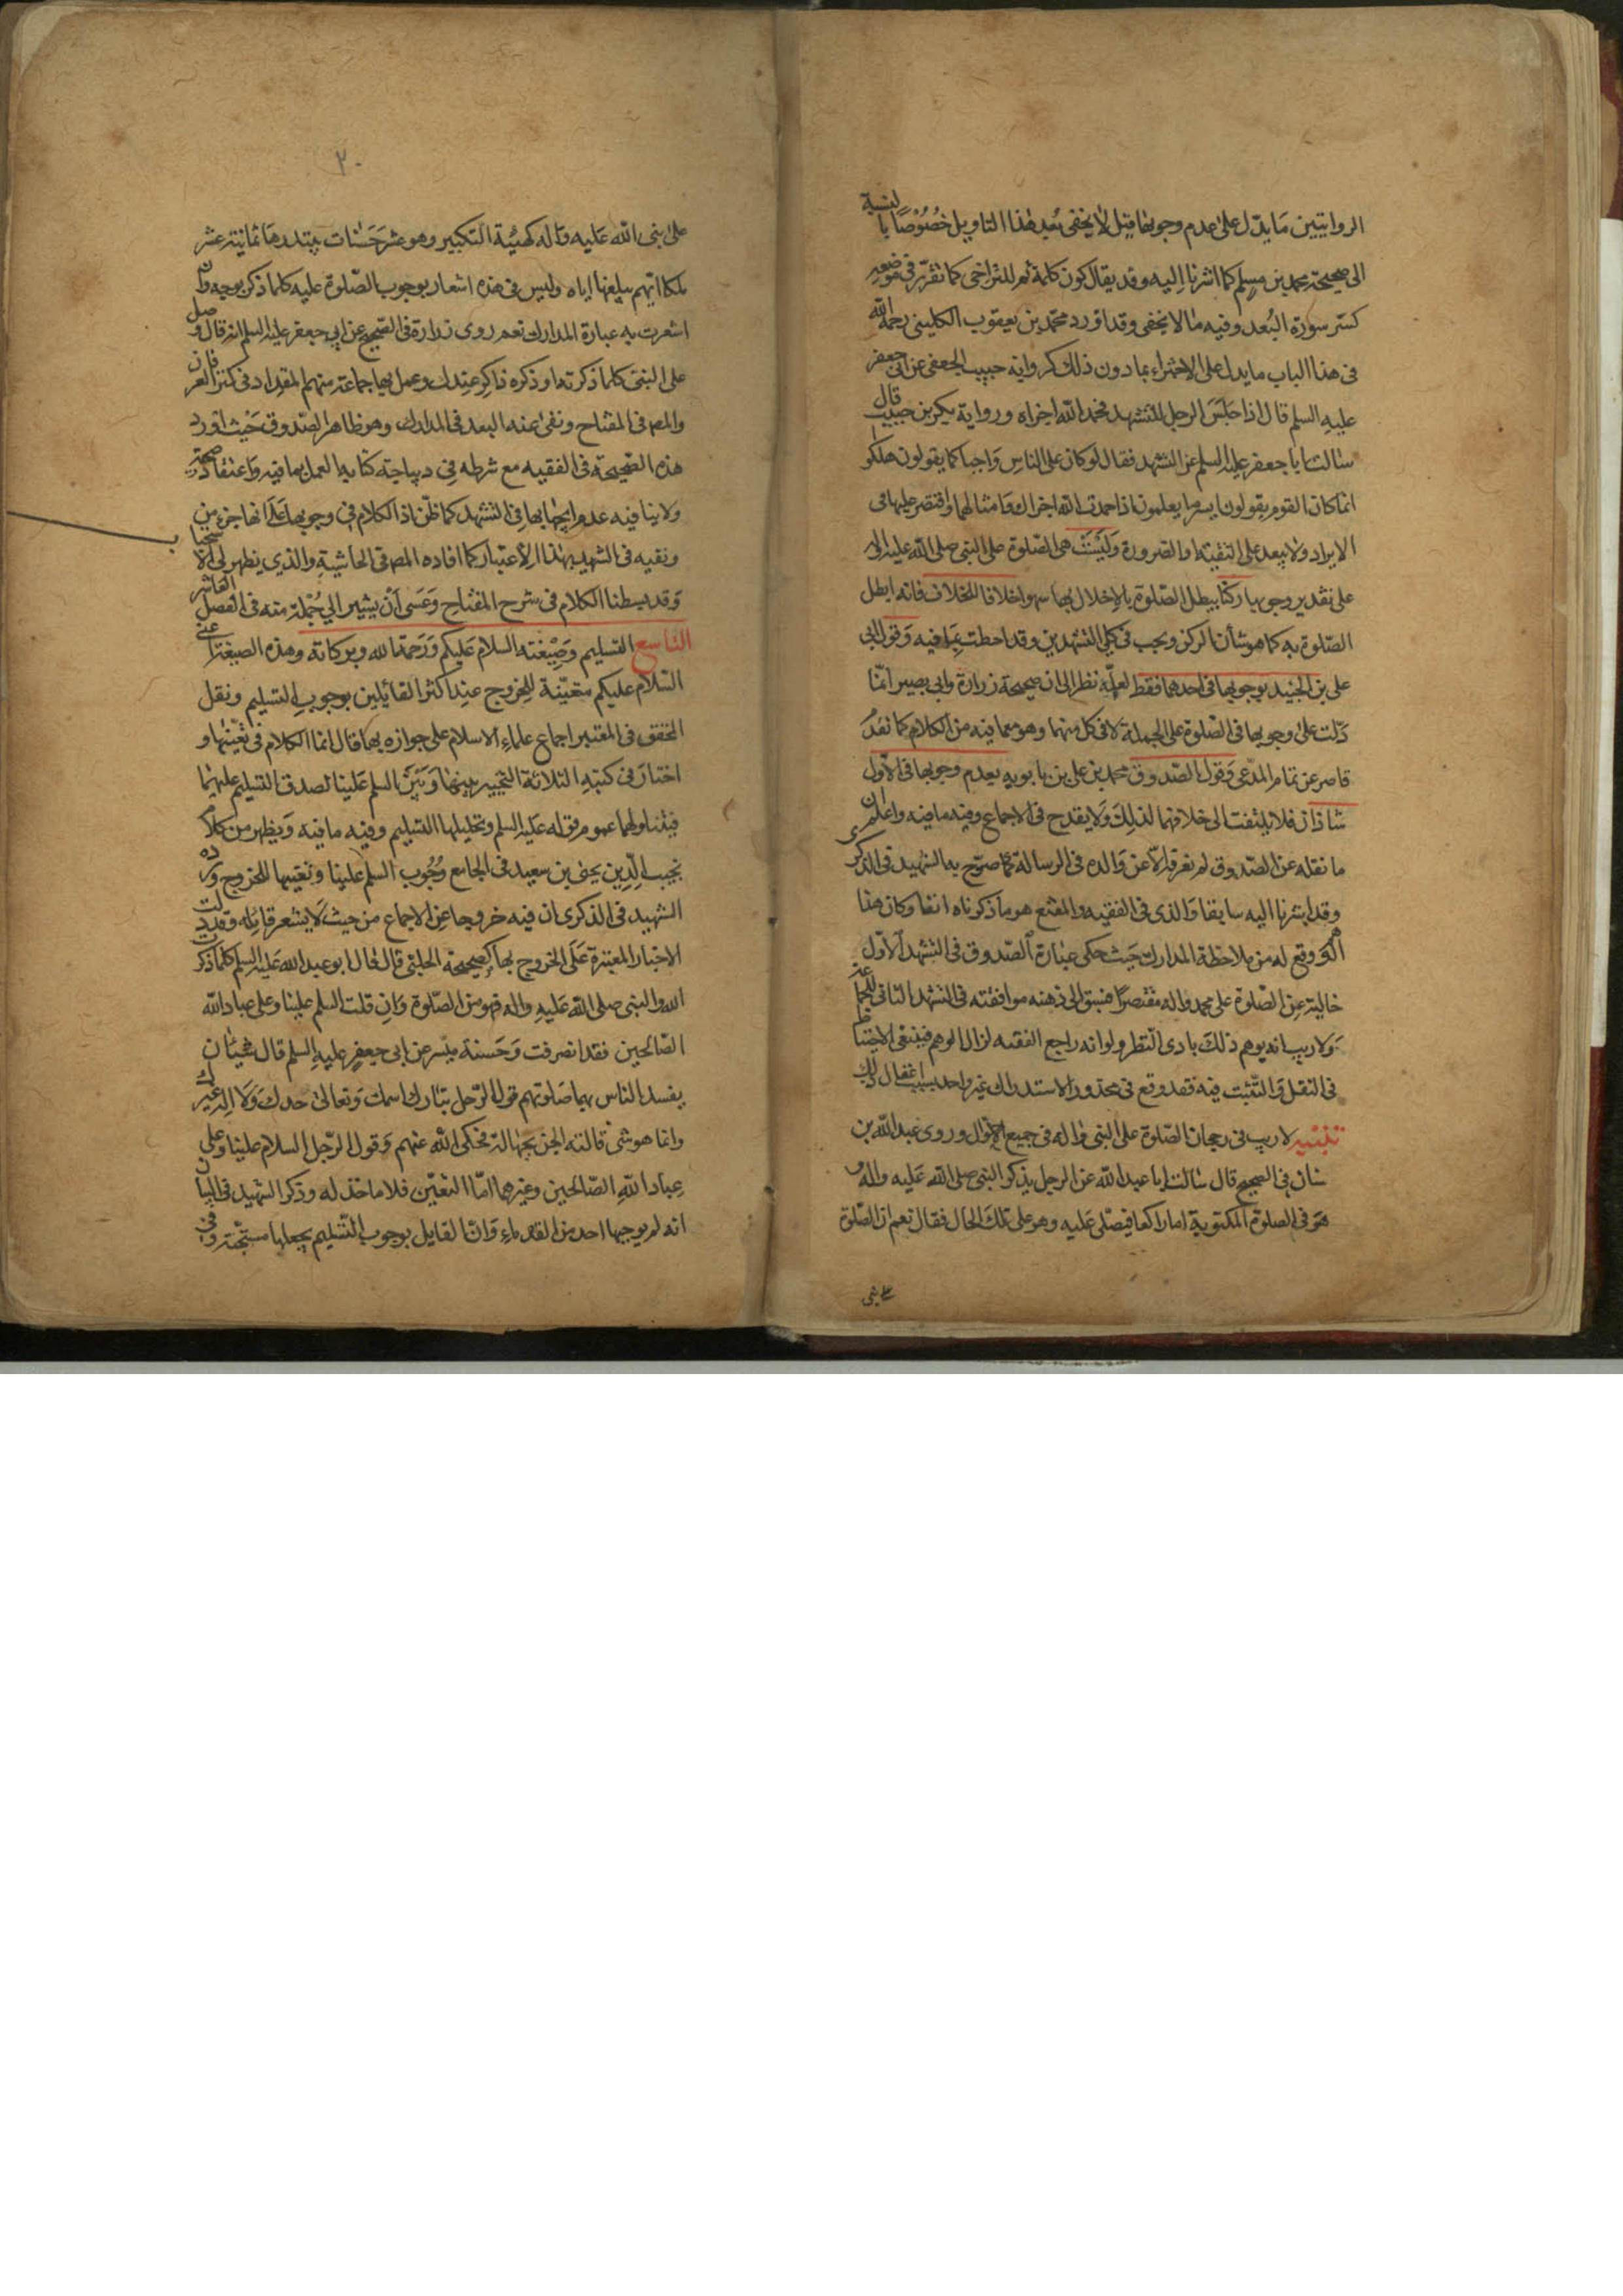 الروايتين مَا يدّل على عدم وجوبها قيل لا يخفى بُعد هٰذا التاويل خُصُوصًا بالنسبة
الى صحيحة محمد بن مسلم كما اشرنا اليه وقد يقال كون كلمة ثم للتراخى كما تقرّر فى موضعه
كسّر سورة البُعد وفيه ما لا يخفى وقد اورد محمّد بن يعقوب الكلينى رحمه الله
فى هذا الباب ما يدل على الاجتزاء بما دون ذلك كرواية حبيب الجعفى عن ابى جعفر
عليه السلم قال اذا جَلَسَ الرجل للتشهد فحمد الله اجزاه ورواية بكر بن حبيب قال
سالت ابا جعفر عليه السلم عن التشهد فقال لو كان على الناس وَاجبا كما يقولون هلكوا
انما كان القوم يقولون ايسر ما يعلمون اذا حمدت الله اجزاك وَامثالهما واقتصر عليها فى
الايراد ولا يبعد على التقية او الضرورة وَلَيْسَتْ هى الصّلوة على النبى صلى الله عليه واله
على تقدير وجوبها ركنًا يبطل الصّلوة بالاخلال بها سهوا خلافا للخلاف فانه ابطل
الصّلوة به كما هو شأن الركن ويجب فى كلى التشهدين وقد احطت بمَا فيه وَقول ابى
على بن الجنيد بوجوبها فى احدهما فقط لعلّه نظر الى ان صحيحة زرارة وابى بصير انمّا
دَلّت على وجوبها فى الصّلوة على الجملة لا فى كل منهما وهو مع ما فيه من الكلام كما تقدّم
قاصر عن تمام المدّعى وَقول الصّدوق محمد بن على بن بابويه بعدم وجوبها فى الاوّل
شاذان فلا يلتفت الى خلافهما لذلِكَ وَلا يقدح فى الاجماع وفيه ما فيه واعلم ان
ما نقله عن الصّدوق لم نعرفه الّا عن وَالده فى الرسالة كما صرّح به الشهيد فى الذكرى
وقد اشرنا اليه سابقا وَالذى فى الفقيه والمقنع هو ما ذكرناه انفا وكان هذا
الوهم وقع له من ملاحظة المدارك حَيْث حكى عبارة الصّدوق فى التشهد الاوّل
خالية عن الصّلوة على محمد واله مقتصرًا فسبق الى ذهنه موافقته فى التشهد الثانى للجماعة
وَلا ريب انه يوهم ذلكَ بادى النّظر ولو انه راجع الفقيه لزال الوهم فينبغى الاحتياط
فى النقل وَالتّثبت فيه فقد وقع فى محذور الاستدراك غير واحد بسبب اغفال ذلك
تنبيه لا ريب فى رجحان الصّلوة على النبى واله فى جميع الاحوال وروى عبد الله بن
سنان فى الصحيح قال سالت ابا عبد الله عن الرجل يذكر النبى صلى الله عَليه واله و
هَو فى الصلوة المكتوبة اما راكعا فيصلى عَليه وهو على تلكَ الحال فقال نعم ان الصّلوة
على نبى
٢٠
على نبى الله عَليه وَاله كهيئة التكبير وهو عشر حَسَنات يبتدرها ثمانية عشر
ملكا ايّهم يبلغها اياه وليس فى هذه اشعار بوجوب الصّلوة عليه كلما ذكر بوجه وان
اشعرت به عبارة المدارك نعم روى زرارة فى الصّحيح عن ابى جعفر عليه السلم انه قال وصل
على النبى كلما ذكرته او ذكره ذاكر عندك وعمل بها جماعة منهم المقداد فى كنز العرفان
والمصـ فى المفتاح ونفى عنه البعد فى المدارك وهو ظاهر الصّدوق حَيْث اورد
هذه الصّحيحة فى الفقيه مع شرطه فى ديباجة كتابه العمل بما فيه وَاعتقاد صحّته
ولا ينافيه عدم ايجابها فى التشهد كما ظنّ اذ الكلام فى وجوبها عَلى انها جزء من
ونفيه فى التشهد بهذا الاعتبار كما افاده المصـ فى الحاشية والذي يظهر لى الاستحباب
وَقد بسطنا الكلام فى شرح المفتاح وَعَسى اَنْ يشير الي جُمْلة منه فى الفصل العاشر
التاسع التسليم وَصِيْغته السلام عَليكم وَرَحمة الله وبركاته وهذه الصيغة اعنى
السّلام عليكم متعيّنة للخروج عند اكثر القائلين بوجوب التسليم ونقل
المحقق فى المعتبر اجماع علماء الاسلام على جوازه بها قال انما الكلام فى تعيّنها و
اختارَ فى كتبه الثلاثة التخيير بينها وَبَيْنَ السلم عَلينا لصدق التسليم عليهما
فيتناولهما عموم قوله عَليه السلم وتحليلها التسليم وفيه ما فيه وَيظهر من كلام
نجيب الدّين يحيى بن سعيد فى الجامع وُجُوب السلم علينا وتعيينها للخروج ورده
الشهيد فى الذكرى ان فيه خروجا عن الاجماع من حيث لَا يشعر قائله وقد دلت
الاخبار المعتبرة عَلَى الخروج بها كصحيحة الحلبى قال قال ابو عبد الله عَليه السلم كلما ذكرت
الله والنبى صلى الله عَليه واله فهو من الصّلوة وَان قلت السلم علينا وعلى عباد الله
الصّالحين فقد انصرفت وَحَسنة ميسر عن ابى جعفر عليه السلم قال شيئان
يفسد الناس بهما صَلوتهم قول الرّجل تبارك اسمك وَتعالى جدك وَلا اله غيرك
وانما هو شئ قالته الجن بجهالة فحكى الله عنهم وَقول الرّجل السلام علينا وعلى
عِباد اللهِ الصّالحين وغيرهما امّا التعيّن فلا ماخذ له وذكر الشهيد فى البيان
انه لم يوجبها احد من القدماء وَانّ القايل بوجوب التّسليم يجعلها مستحبّة وفى